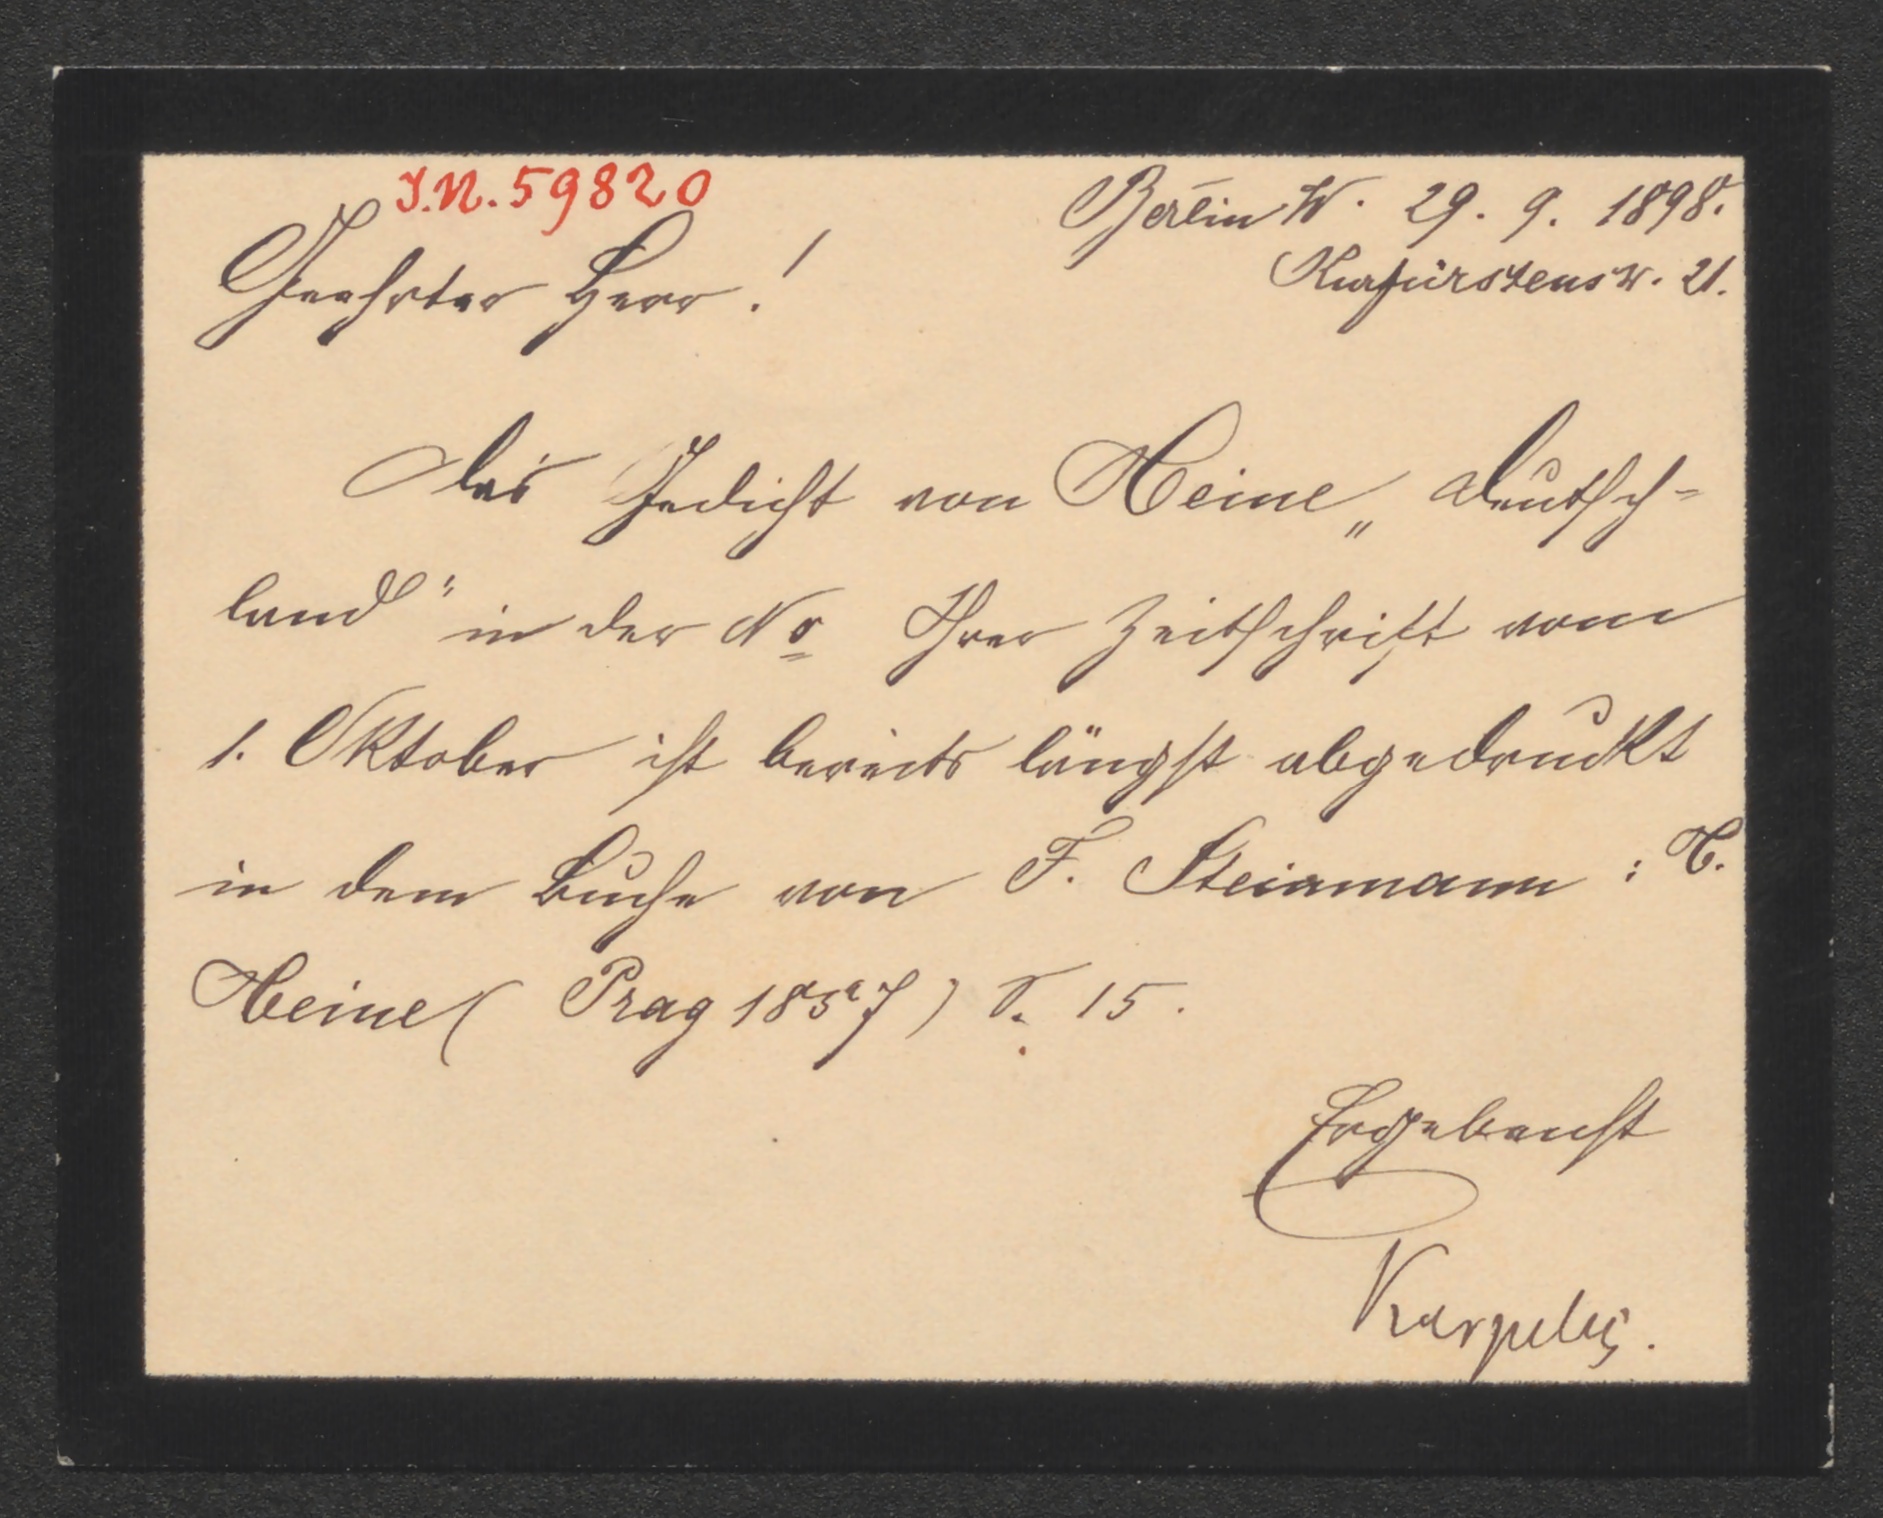 J.N. 59820
Berlin W. 29. 9. 1898.
Kurfürstenstr. 21.
Geehrter Herr!
Das Gedicht von Heine „Deutsch-
land" in der No Ihrer Zeitschrift vom
1. Oktober ist bereits längst abgedruckt
in dem Buche von F. Steinmann: H.
Heine (Prag 1857) S. 15.
Ergebenst
Karpeles.